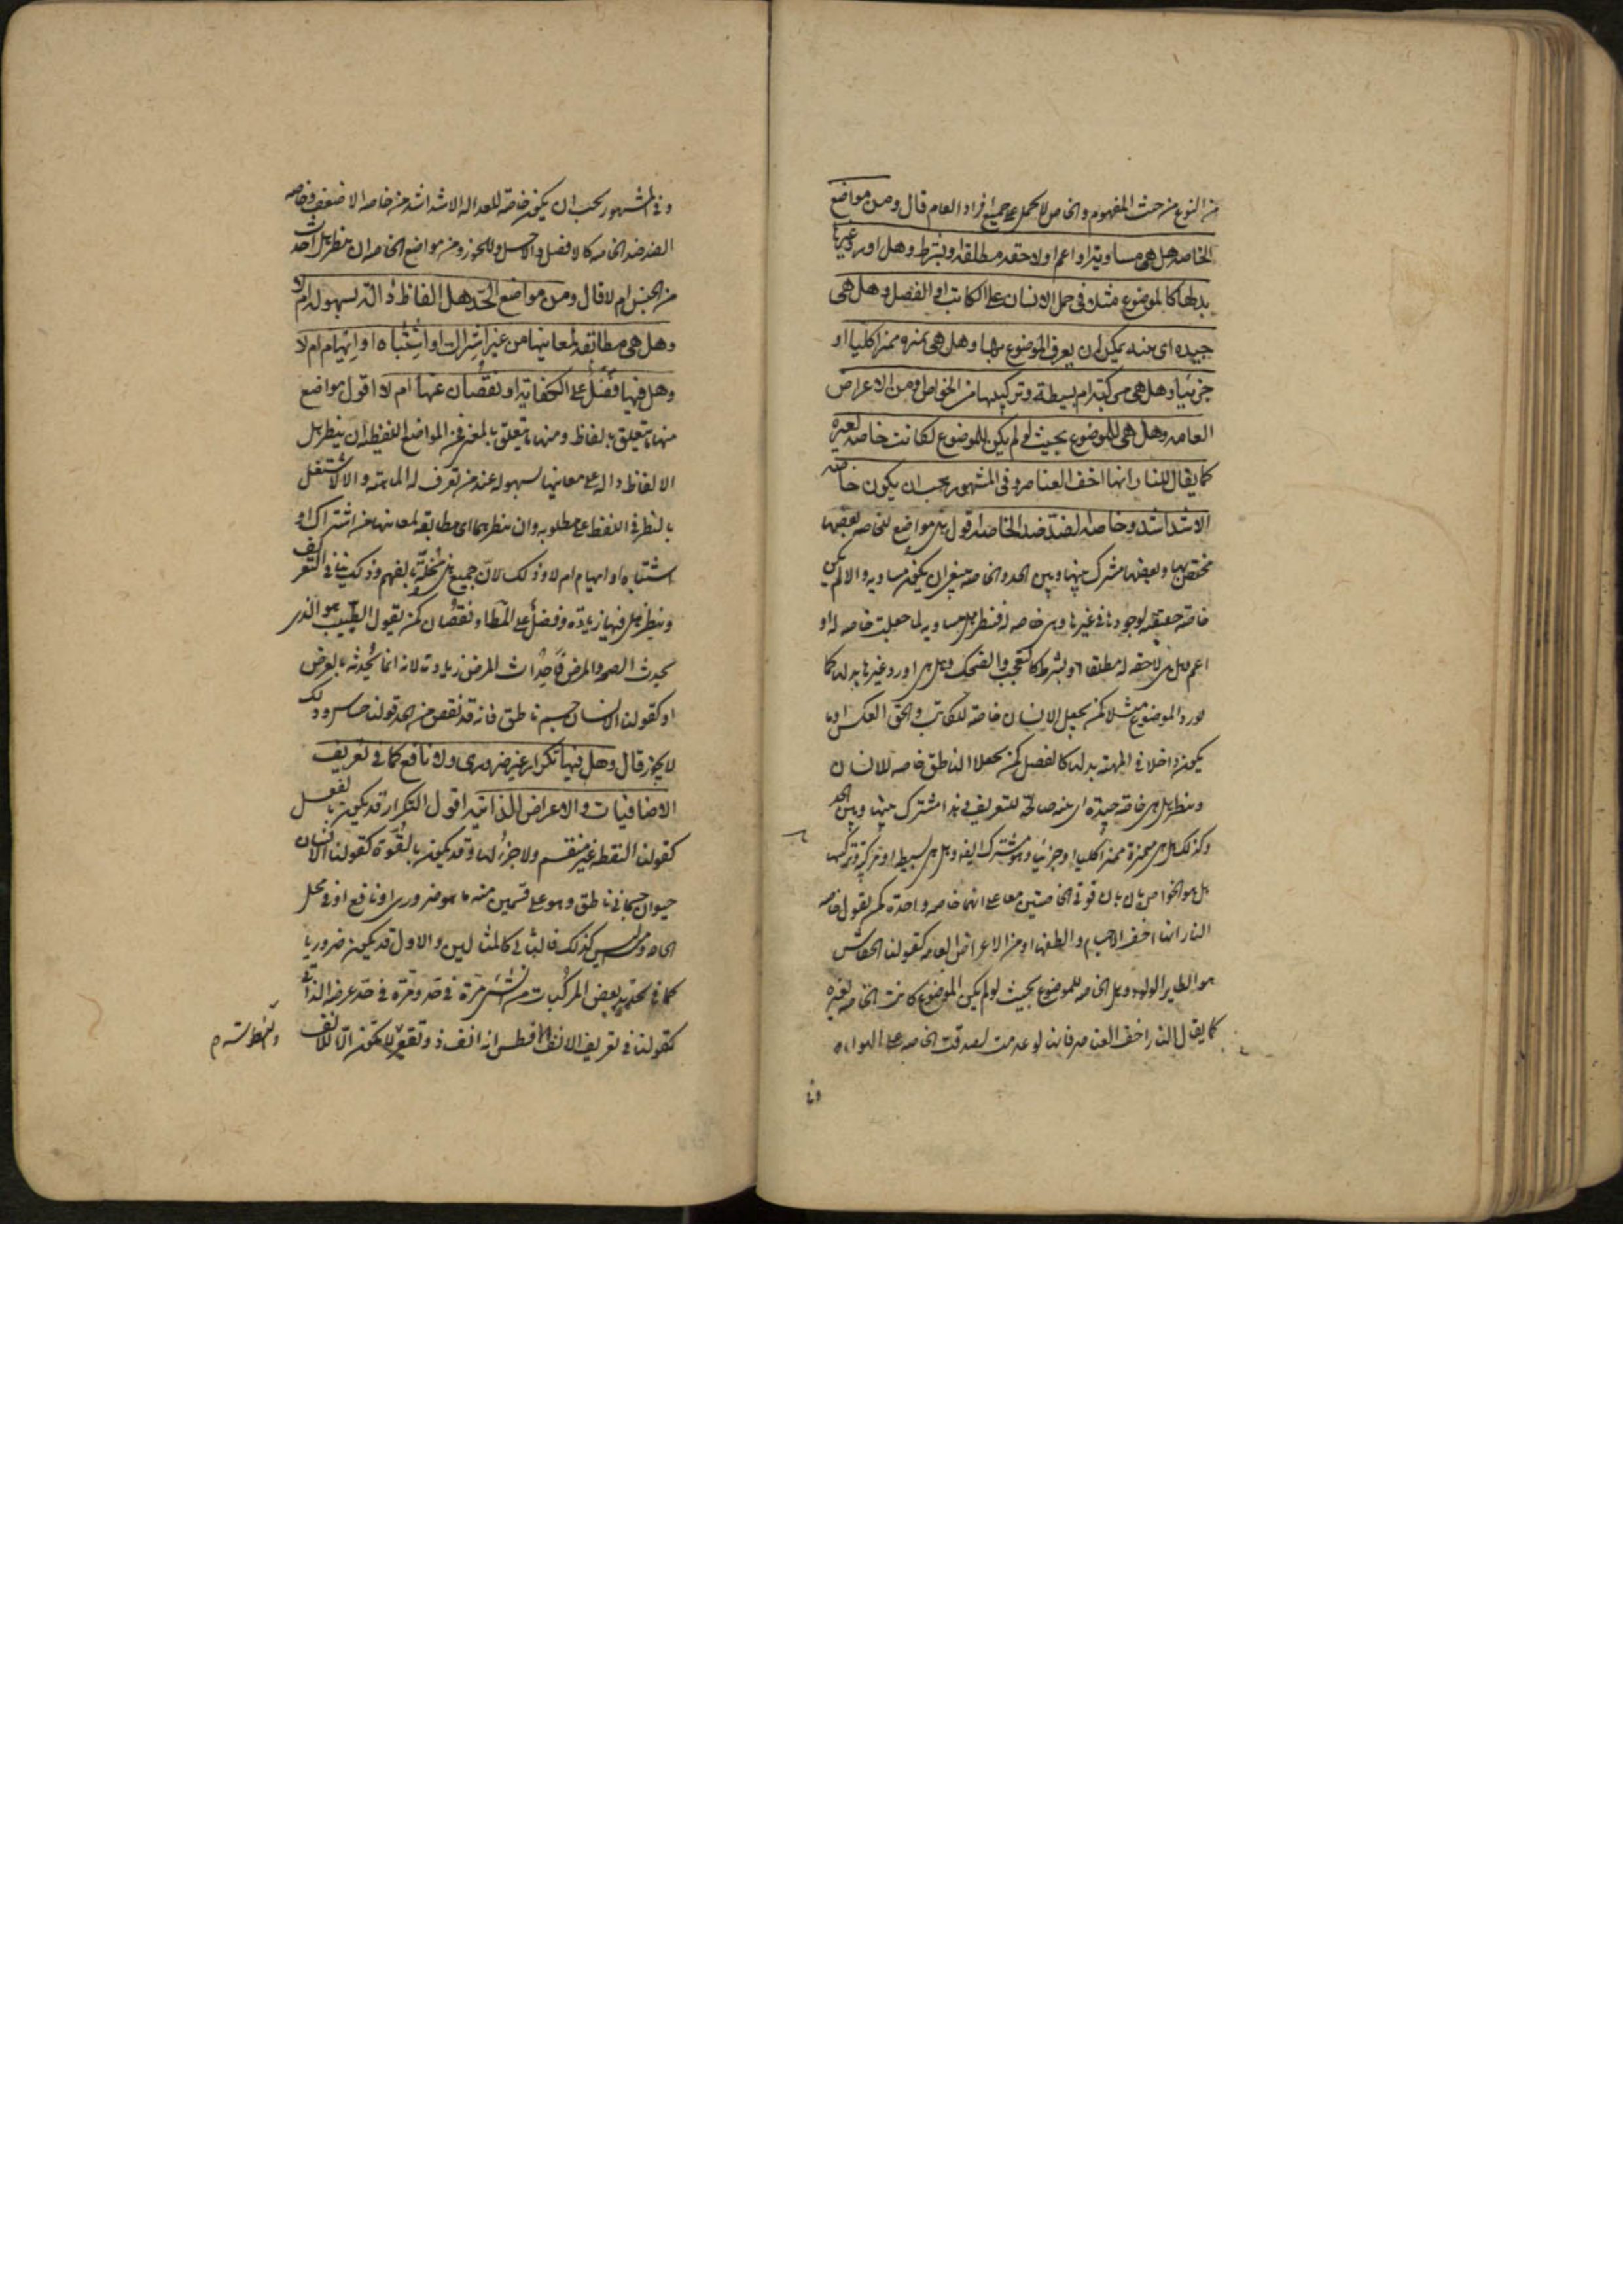 من النوع من حيث المفهوم والخاص لا يحمل على جميع افراد العام قال ومن مواضع
الخاصه هل هى مساوية او اعم او لاحقه مطلقا او بشرط وهل اورد غيرها
بدلها كالموضوع مثلا فى حمل الانسان على الكاتب او الفصل وهل هى
جيده اى بينه يمكن ان يعرف الموضوع بها وهل هى مميزه مميزا كليا او
جزئيا وهل هى مركبة ام بسيطة وتركيبها من الخواص او من الاعراض
العامه وهل هى للموضوع بحيث لو لم يكن الموضوع لكانت خاصه لغيره
كما يقال للنار انها اخف العناصر وفى المشهور يجب ان يكون خاصه
الاشد اشد وخاصه الضد ضد الخاصه اقول هذه مواضع للخاصه بعضها
مختص بها وبعضها مشترك بينها وبين الحد والخاصه ينبغى ان يكون مساويه والا لم يكن
خاصة حقيقة لوجودها فى غيرها وهى خاصه له فينظر هل هى مساويه لما جعلت خاصه له او
اعم هل هى لاحقه له مطلقا او بشرط كالتعجب والضحك وهل هى اورد غيرها بدلها كما
يورد الموضوع مثلا كمن يجعل الانسان خاصة للكاتب والحق العكس او ما
يكون داخلا فى المهية بدلها كالفصل كمن يجعل الناطق خاصه للانسان
وينظر هل هى خاصه جيدة اى بينه صالحة للتعريف وهذا مشترك بينها وبين الحد
وكذلك هل هى مميزة مميزا كليا او جزئيا وهو مشترك ايضا وهل هى بسيط او مركبة وتركيبها
هل هو الخواص بان قوتى الخاصتين معا على انهما خاصه واحدة كمن يقول خاصه
النار انها اخف الاجسام والطفها او من الاعراض العامه كقولنا الخفاش
هو الطير الولود وهل الخاصه للموضوع بحيث لو لم يكن الموضوع كانت الخاصه لغيره
كما يقال النار اخف العناصر فانها لو عدمت لصدقت الخاصه على الهواء
وفى المشهور يجب ان يكون خاصة العداله الاشد اشد من خاصه الاضعف وخاصه
الضد ضد الخاصه كالافضل والاخس وللجوز ومن مواضع الخاصه ان ينظر هل اخذت
من الجنس ام لا قال ومن مواضع الحد هل الفاظه دالة بسهوله ام لا
وهل هى مطابقه لمعانيها من غير اشتراك او اشتباه او ابهام ام لا
وهل فيها فضل على الكفاية او نقصان عنها ام لا اقول مواضع
منها ما يتعلق بالفاظ ومنها ما يتعلق بالمعنى فمن المواضع اللفظيه ان ينظر هل
الالفاظ داله على معانيها بسهوله عند من تعرف له الماهية والا لاشتغل
بالنظر فى اللفظ عن مطلوبه وان ينظر هل هى مطابقه لمعانيها من اشتراك او
اشتباه او ابهام ام لا وذلك لان جميع هذه مخلة بالفهم وذلك ينافى التعريف
وينظر هل فيها زيادة وفضل على المطا او نقصان كمن يقول الطبيب هو الذى
يحدث الصحه والمرض فاحداث المرض زيادة لانه انما يحدثه بالعرض
او كقولنا الانسان جسم ناطق فانه قد نقص من الحد قولنا حساس وذلك
لا يجوز قال وهل فيها تكرار غير ضرورى ولا نافع كما فى تعريف
الاضافيات والاعراض الذاتيه اقول التكرار قد يكون بالفعل
كقولنا النقطه غير منقسم ولا جزء لها وقد يكون بالقوة كقولنا الانسان
حيوان جسمانى ناطق وهو على قسمين منه ما هو ضرورى او نافع او فى محل
الحاجه وما ليس كذلك فالثانى كالمثالين والاول قد يكون ضروريا
كما فى تحديد بعض المركبات من شئ مرة فى حد ومرة فى حد عرضه الذاتى
كقولنا فى تعريف الانف الافطس انه انف ذو تقعير لا يكون الا للانف
والفطوسة م
وفى